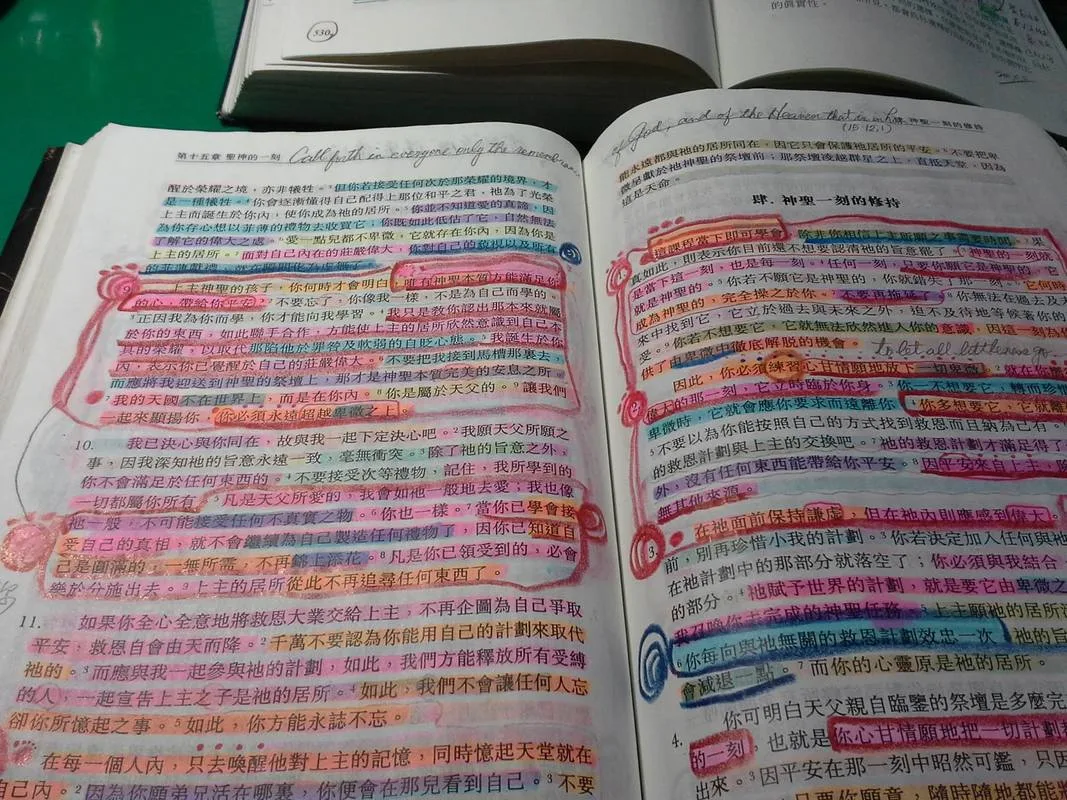 530
的真實性。
第十五章 聖神的一刻
Call forth in everyone only the remembrance
醒於榮耀之境，亦非犧牲。⁵但你若接受任何次於那榮耀的境界，才
是一種犧牲。⁶你會逐漸懂得自己配得上那位和平之君，祂為了光榮
上主而誕生於你內，使你成為祂的居所。⁷你並不知道愛的真諦，因
為你存心想以菲薄的禮物去收買它；你既如此低估了它，自然無法
了解它的偉大之處。⁸愛一點兒都不卑微，它就存在你內，因為你是
上主的居所。⁹面對自己內在的莊嚴偉大，你對自己的藐視以及所有
上主神聖的孩子，你何時才會明白，唯有神聖本質方能滿足你
的心，帶給你平安？²不要忘了，你像我一樣，不是為自己而學的。
³正因我為你而學，你才能向我學習。⁴我只是教你認出那本來就屬
於你的東西，如此聯手合作，方能使上主的居所欣然意識到自己本
具的榮耀，以取代那陷他於罪咎及軟弱的自貶心態。⁵我誕生於你
內，表示你已覺醒於自己的莊嚴偉大。⁶不要把我接到馬槽那裏去，
而應將我迎送到神聖的祭壇上，那才是神聖本質完美的安息之所。
⁷我的天國不在世界上，而是在你內。⁸你是屬於天父的。⁹讓我們
一起來顯揚你，你必須永遠超越卑微之上。
10. 我已決心與你同在，故與我一起下定決心吧。²我願天父所願之
事，因我深知祂的旨意永遠一致，毫無衝突。³除了祂的旨意之外，
你不會滿足於任何東西。⁴不要接受次等禮物，記住，我所學到的
一切都屬你所有。⁵凡是天父所愛的，我會如祂一般地去愛；我也像
祂一般，不可能接受任何不真實之物。⁶你也一樣。⁷當你已學會接
受自己的真相，就不會繼續為自己製造任何禮物了，因你已知道自
己是圓滿的，一無所需，不再錦上添花。⁸凡是你已領受到的，必會
樂於分施出去。⁹上主的居所從此不再追尋任何東西了。
11. 如果你全心全意地將救恩大業交給上主，不再企圖為自己爭取
平安，救恩自會由天而降。²千萬不要認為你能用自己的計劃來取代
祂的。³而應與我一起參與祂的計劃，如此，我們方能釋放所有受縛
的人，一起宣告上主之子是祂的居所。⁴如此，我們不會讓任何人忘
卻你所憶起之事。⁵如此，你方能永誌不忘。
在每一個人內，只去喚醒他對上主的記憶，同時憶起天堂就在
自己內。²因為你願弟兄活在哪裏，你便會在那兒看到自己。³不要
of God, and of the Heaven that is in him. (15·12,1)
神聖一刻的修持
能永遠都與祂的居所同在，因它只會保護祂居所的平安。⁶不要把卑
微呈獻於祂神聖的祭壇前，那祭壇凌越群星之上，直抵天堂，因為
這是天命。
肆．神聖一刻的修持
這課程當下即可學會，除非你相信上主所願之事需要時間。²果
真如此，則表示你目前還不想要認清祂的旨意罷了。³神聖的一刻就
是當下這一刻，也是每一刻。⁴任何一刻，只要你願它是神聖的，它
就是神聖的。⁵你若不願它是神聖的，你就錯失了那一刻。⁶它何時
成為神聖的，完全操之於你。⁷不要再拖延了。⁸你無法在過去及未
來中找到它，它立於過去與未來之外，迫不及待地等候著你的
受。⁹你若不想要它，它就無法欣然進入你的意識，因這一刻為你
供了由卑微中徹底解脫的機會。
to let all littleness go.
因此，你必須練習心甘情願地放下一切卑微。²就在你願
偉大的那一刻，它立時臨於你身。³你一不想要它，轉而珍惜
卑微時，它就會應你要求而遠離你。⁴你多想要它，它就離
⁵不要以為你能按照自己的方式找到救恩而且納為己有。
的救恩計劃與上主的交換吧。⁷祂的救恩計劃才滿足得了
外，沒有任何東西能帶給你平安。⁸因平安來自上主，除
無其他來源。
3. 在祂面前保持謙虛，但在祂內則應感到偉大。
前，別再珍惜小我的計劃。³你若決定加入任何與祂
在祂計劃中的那部分就落空了；你必須與我結合
的部分。⁴祂賦予世界的計劃，就是要它由卑微之
我召喚你去完成的神聖任務。⁵上主願祂的居所
⁶你每向與祂無關的救恩計劃效忠一次，祂的旨
會減退一點。⁷而你的心靈原是祂的居所。
4. 你可明白天父親自臨鑒的祭壇是多麼完
的一刻，也就是你心甘情願地把一切計劃
出來。³因平安在那一刻中昭然可鑑，只因
只要你願意，隨時隨地都能